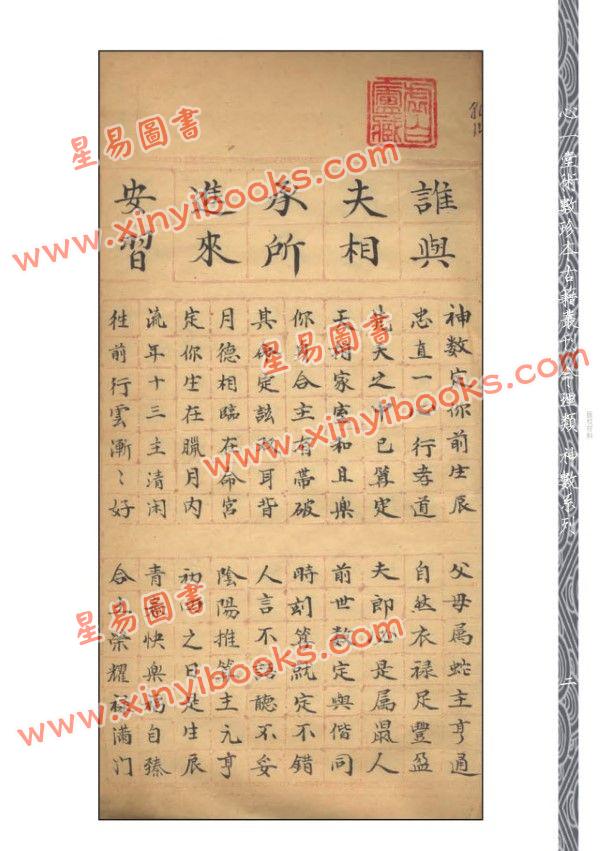 心一堂術數珍本古籍叢刊 星命類 神數系列
二
虛白廬藏
誰與
夫相
承所
進來
安習
神数定你前生辰
忠直一心行孝道
之中已算定
家室和且樂
你身合主有帶破
其定該耳背
月德相臨在命宮
定你生在臘月内
流年十三主清闲
往前行雲漸〻好
父母属蛇主亨通
自然衣禄足豐盈
夫郎必是属鼠人
前世数定與偕同
時刻算就定不錯
人言不語聽不妥
陰陽推算主元亨
初之日是生辰
青快樂福自臻
合主榮耀福满门
星易圖書
www.xinyibooks.com
星易圖書
www.xinyibooks.com
星易圖書
www.xinyibooks.com